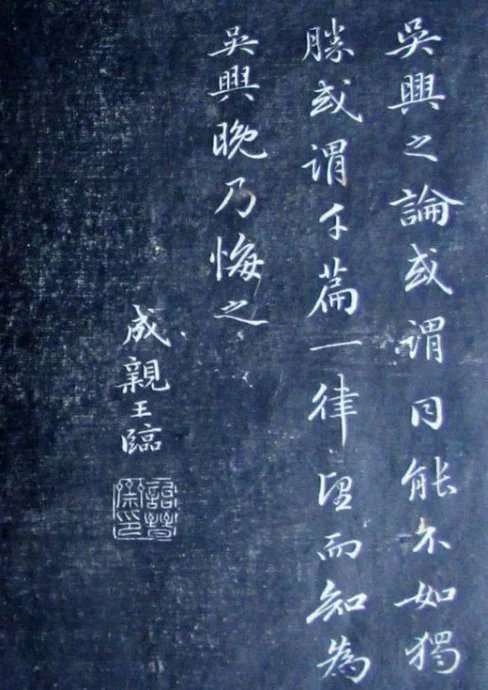 吳興之論或謂同能不如獨
勝或謂千篇一律望而知為
吳興晚乃悔之
成親王臨
詒晉齋印